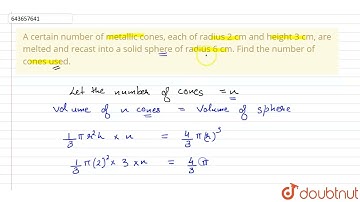 643657641
A certain number of metallic cones, each of radius 2 cm and height 3 cm, are
melted and recast into a solid sphere of radius 6 cm. Find the number of
cones used.
Let the number of cones = n
Volume of n cones = Volume of sphere
1/3 πr²h × n = 4/3 π(r)³
1/3 π(2)² × 3 × n = 4/3 (π
doubtnut